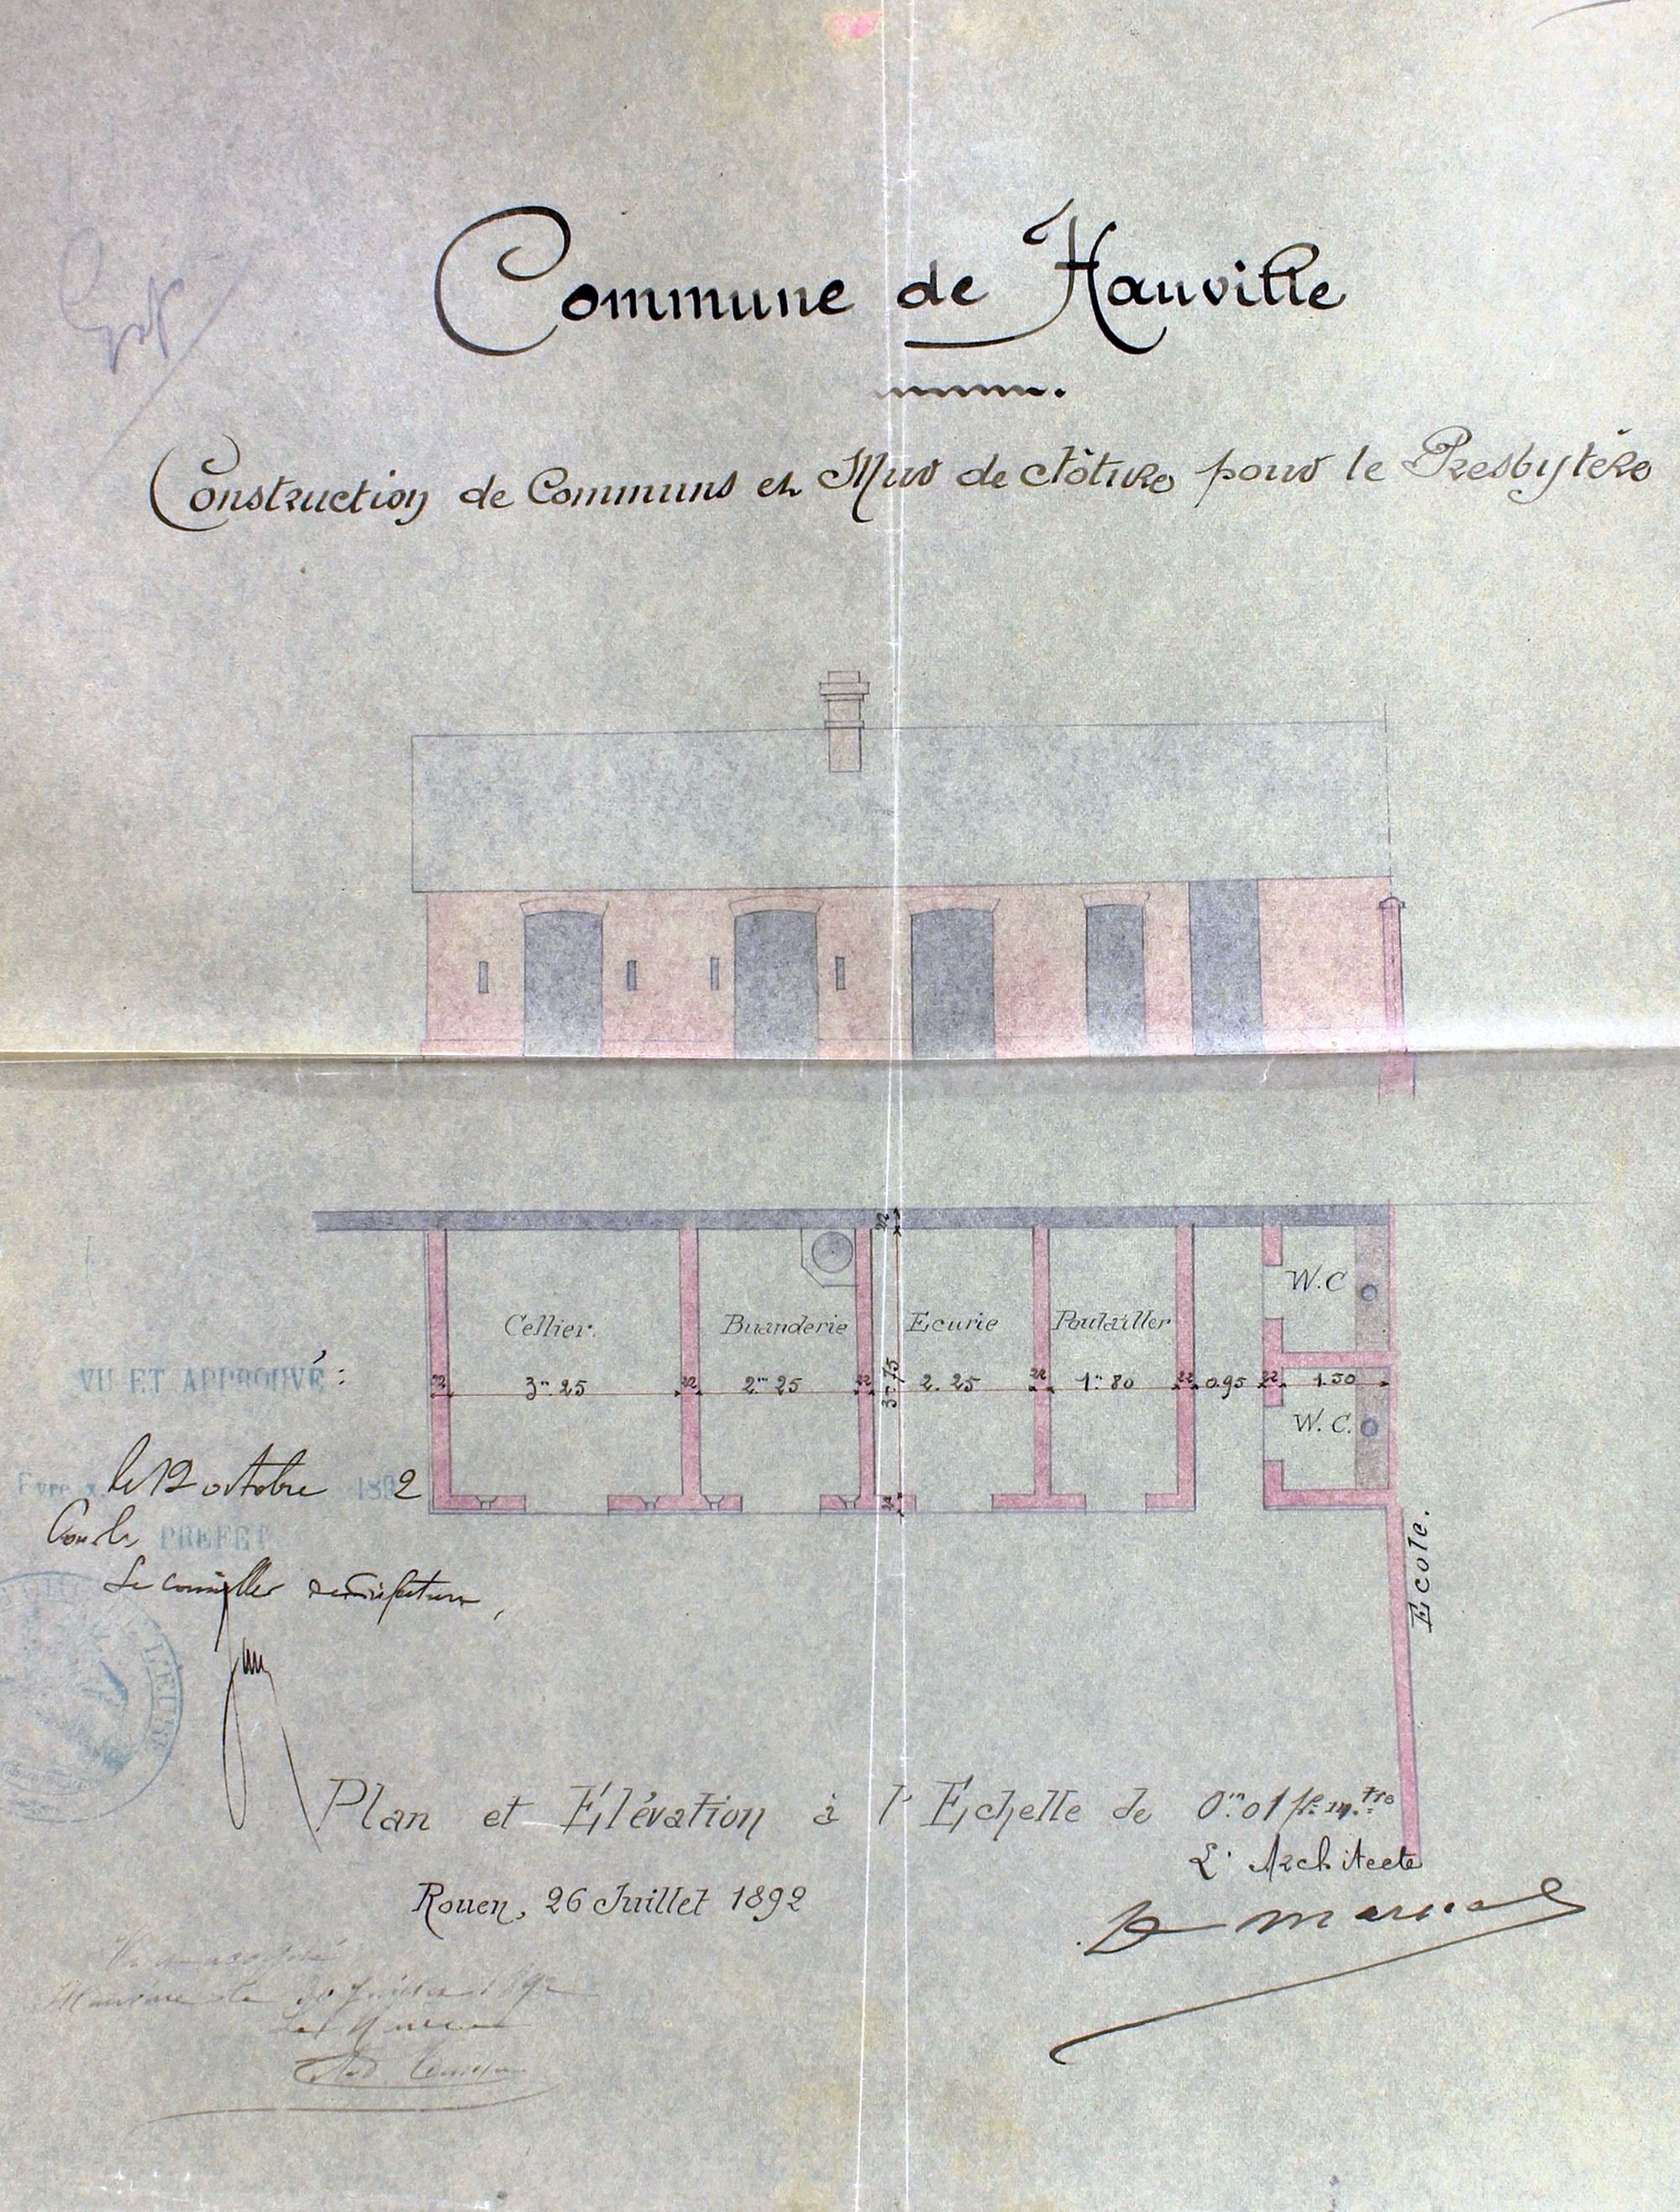 Commune de Hauville
Construction de Communs et Mur de clôture pour le Presbytère
22
Cellier.
Buanderie
Ecurie
Poulailler
W.C
22
3m 25
22
2m 25
22
3m 75
2. 25
22
1m 80
22
0.95
22
1.50
W.C.
22
Ecole.
VU ET APPROUVÉ :
le 12 octobre 1892
PRÉFET
L'EURE
Plan et Élévation à l'Echelle de 0m01 pr. m.tre
L'Architecte
Rouen, 26 Juillet 1892